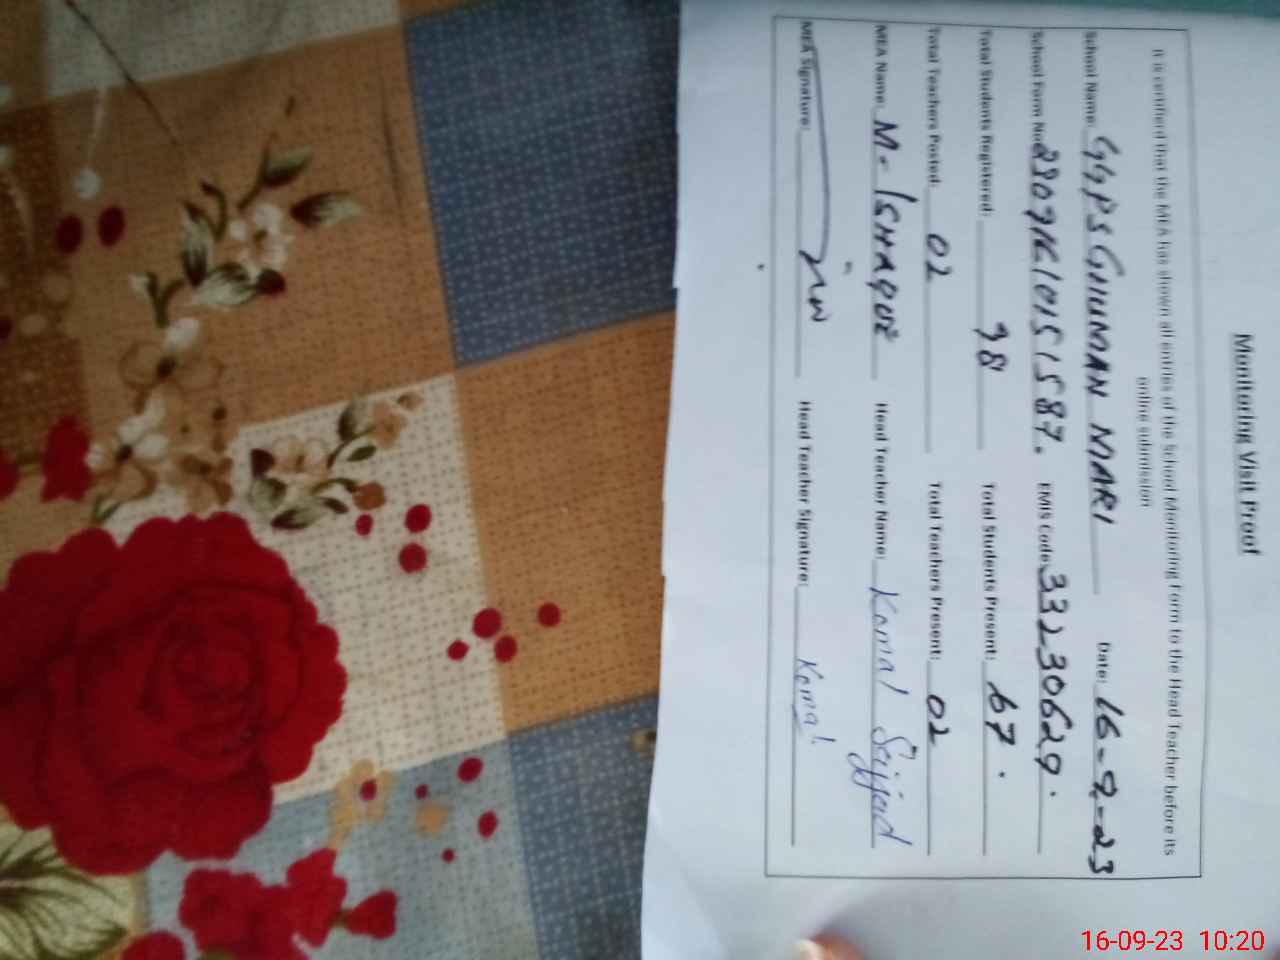 Monitoring Visit Proof
It is certified that the MEA has shown all entries of the School Monitoring Form to the Head Teacher before its
online submission
School Name: GGPS GHUMAN MARI Date: 16-9-23
School Form No: EMIS Code: 33230629.
Total Students Registered: 98 Total Students Present: 67.
Total Teachers Posted: 02 Total Teachers Present: 02
MEA Name: M-ISHAQUE Head Teacher Name: Komal Sajjad
MEA Signature: Head Teacher Signature: Komal
16-09-23 10:20